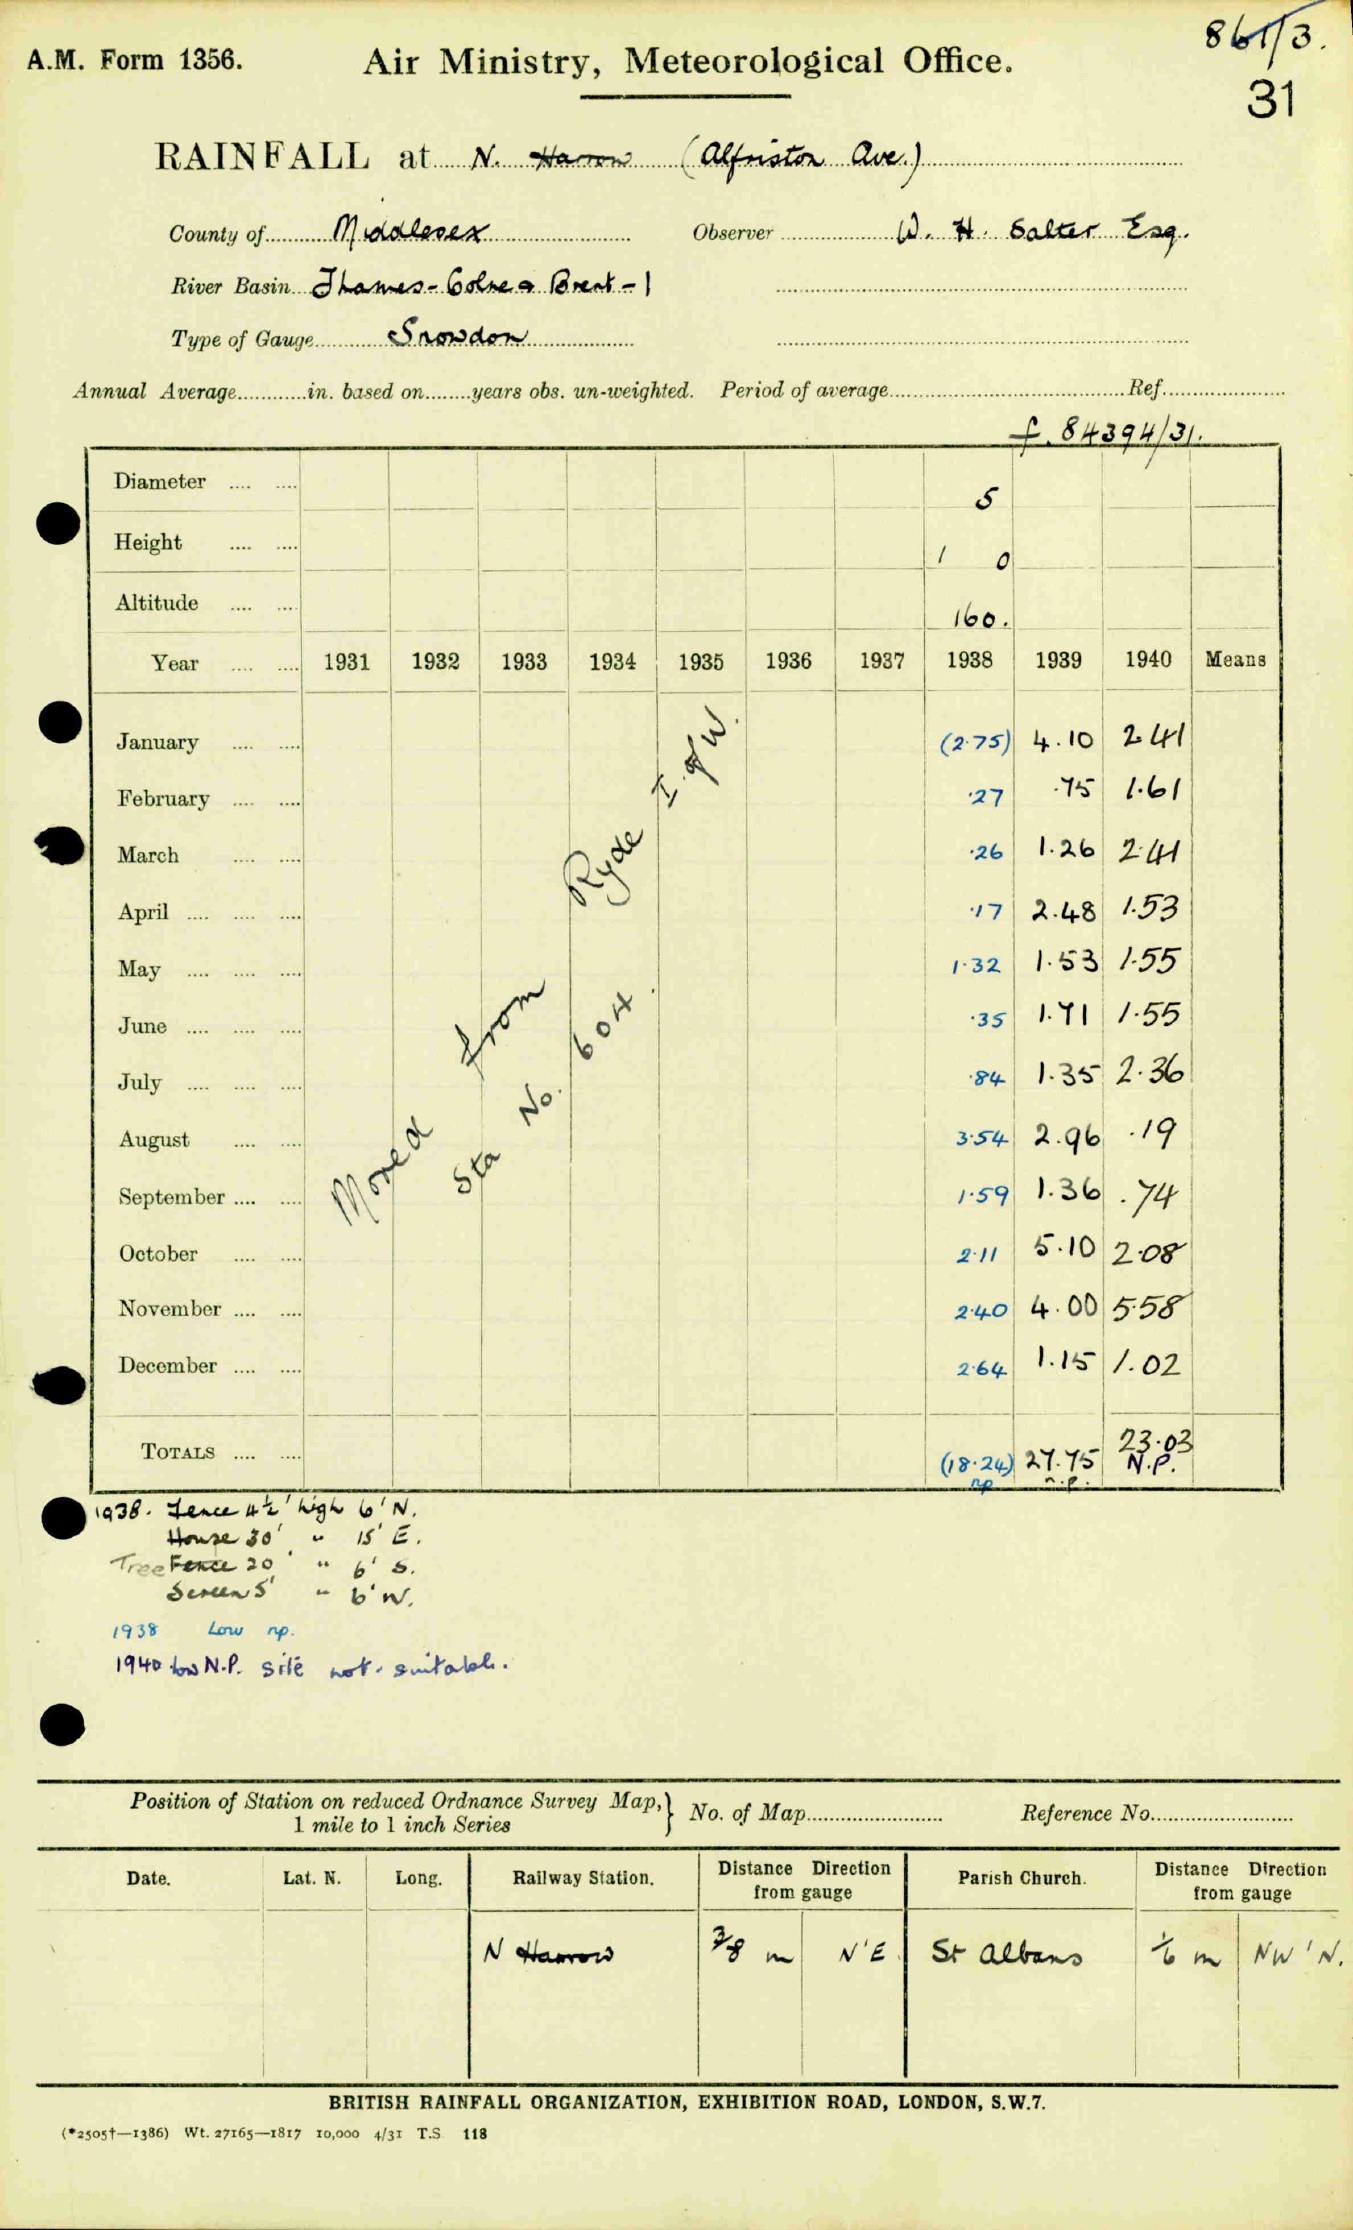 861/3.
A.M. Form 1356. Air Ministry, Meteorological Office.
31
RAINFALL at N. Harrow (Alfriston Ave.)
County of Middlesex Observer W. H. Salter Esq.
River Basin Thames - Colne & Brent - 1
Type of Gauge Snowdon
Annual Average............in. based on........years obs. un-weighted. Period of average........................................Ref.....................
f. 84394/31.
Diameter .... .... 5
Height .... .... 1 0
Altitude .... .... 160.
Year .... .... 1931 1932 1933 1934 1935 1936 1937 1938 1939 1940 Means
January .... .... (2·75) 4.10 2.41
February .... .... ·27 .75 1.61
March .... .... ·26 1.26 2.41
April .... .... .... ·17 2.48 1.53
May .... .... .... 1·32 1.53 1.55
June .... .... .... ·35 1.71 1.55
July .... .... .... ·84 1.35 2.36
August .... .... 3·54 2.96 .19
September .... .... 1·59 1.36 .74
October .... .... 2·11 5.10 2.08
November .... .... 2·40 4.00 5.58
December .... .... 2·64 1.15 1.02
Moved from Ryde I. of W.
Sta No. 604.
TOTALS .... .... (18·24) 27.75 23.03
np n.p. N.P.
1938. Fence 4½' high 6' N.
House 30' " 15' E.
Tree Fence 20' " 6' S.
Screen 5' " 6' W.
1938 Low np.
1940 low N.P. site not suitable.
Position of Station on reduced Ordnance Survey Map,} No. of Map........................ Reference No.........................
1 mile to 1 inch Series
Date. Lat. N. Long. Railway Station. Distance Direction from gauge Parish Church. Distance Direction from gauge
N Harrow 3/8 m N'E. St Albans 1/6 m NW'N.
BRITISH RAINFALL ORGANIZATION, EXHIBITION ROAD, LONDON, S.W.7.
(*2505†—1386) Wt. 27165—1817 10,000 4/31 T.S 118